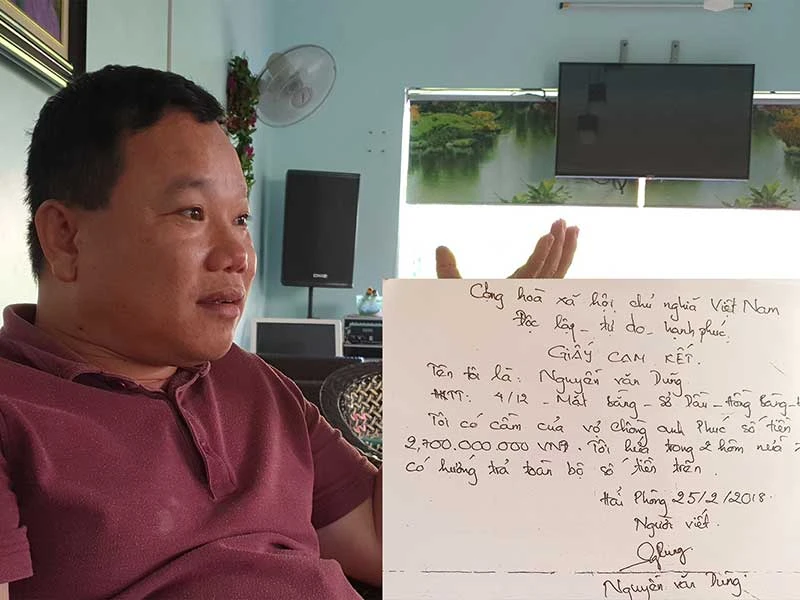 Cộng hoà xã hội chủ nghĩa Việt Nam
Độc lập - tự do - hạnh phúc.
GIẤY CAM KẾT.
Tên tôi là: Nguyễn văn Dũng
HKTT: 4/12 - Mắt bằng - Sở Dầu - Hồng Bàng -
Tôi có cầm của vợ chồng anh Phúc số tiền
2,700.000.000 VNĐ. Tôi hứa trong 2 hôm nữa
có hướng trả toàn bộ số tiền trên.
Hải Phòng 25/2/2018.
Người viết.
Nguyễn văn Dũng